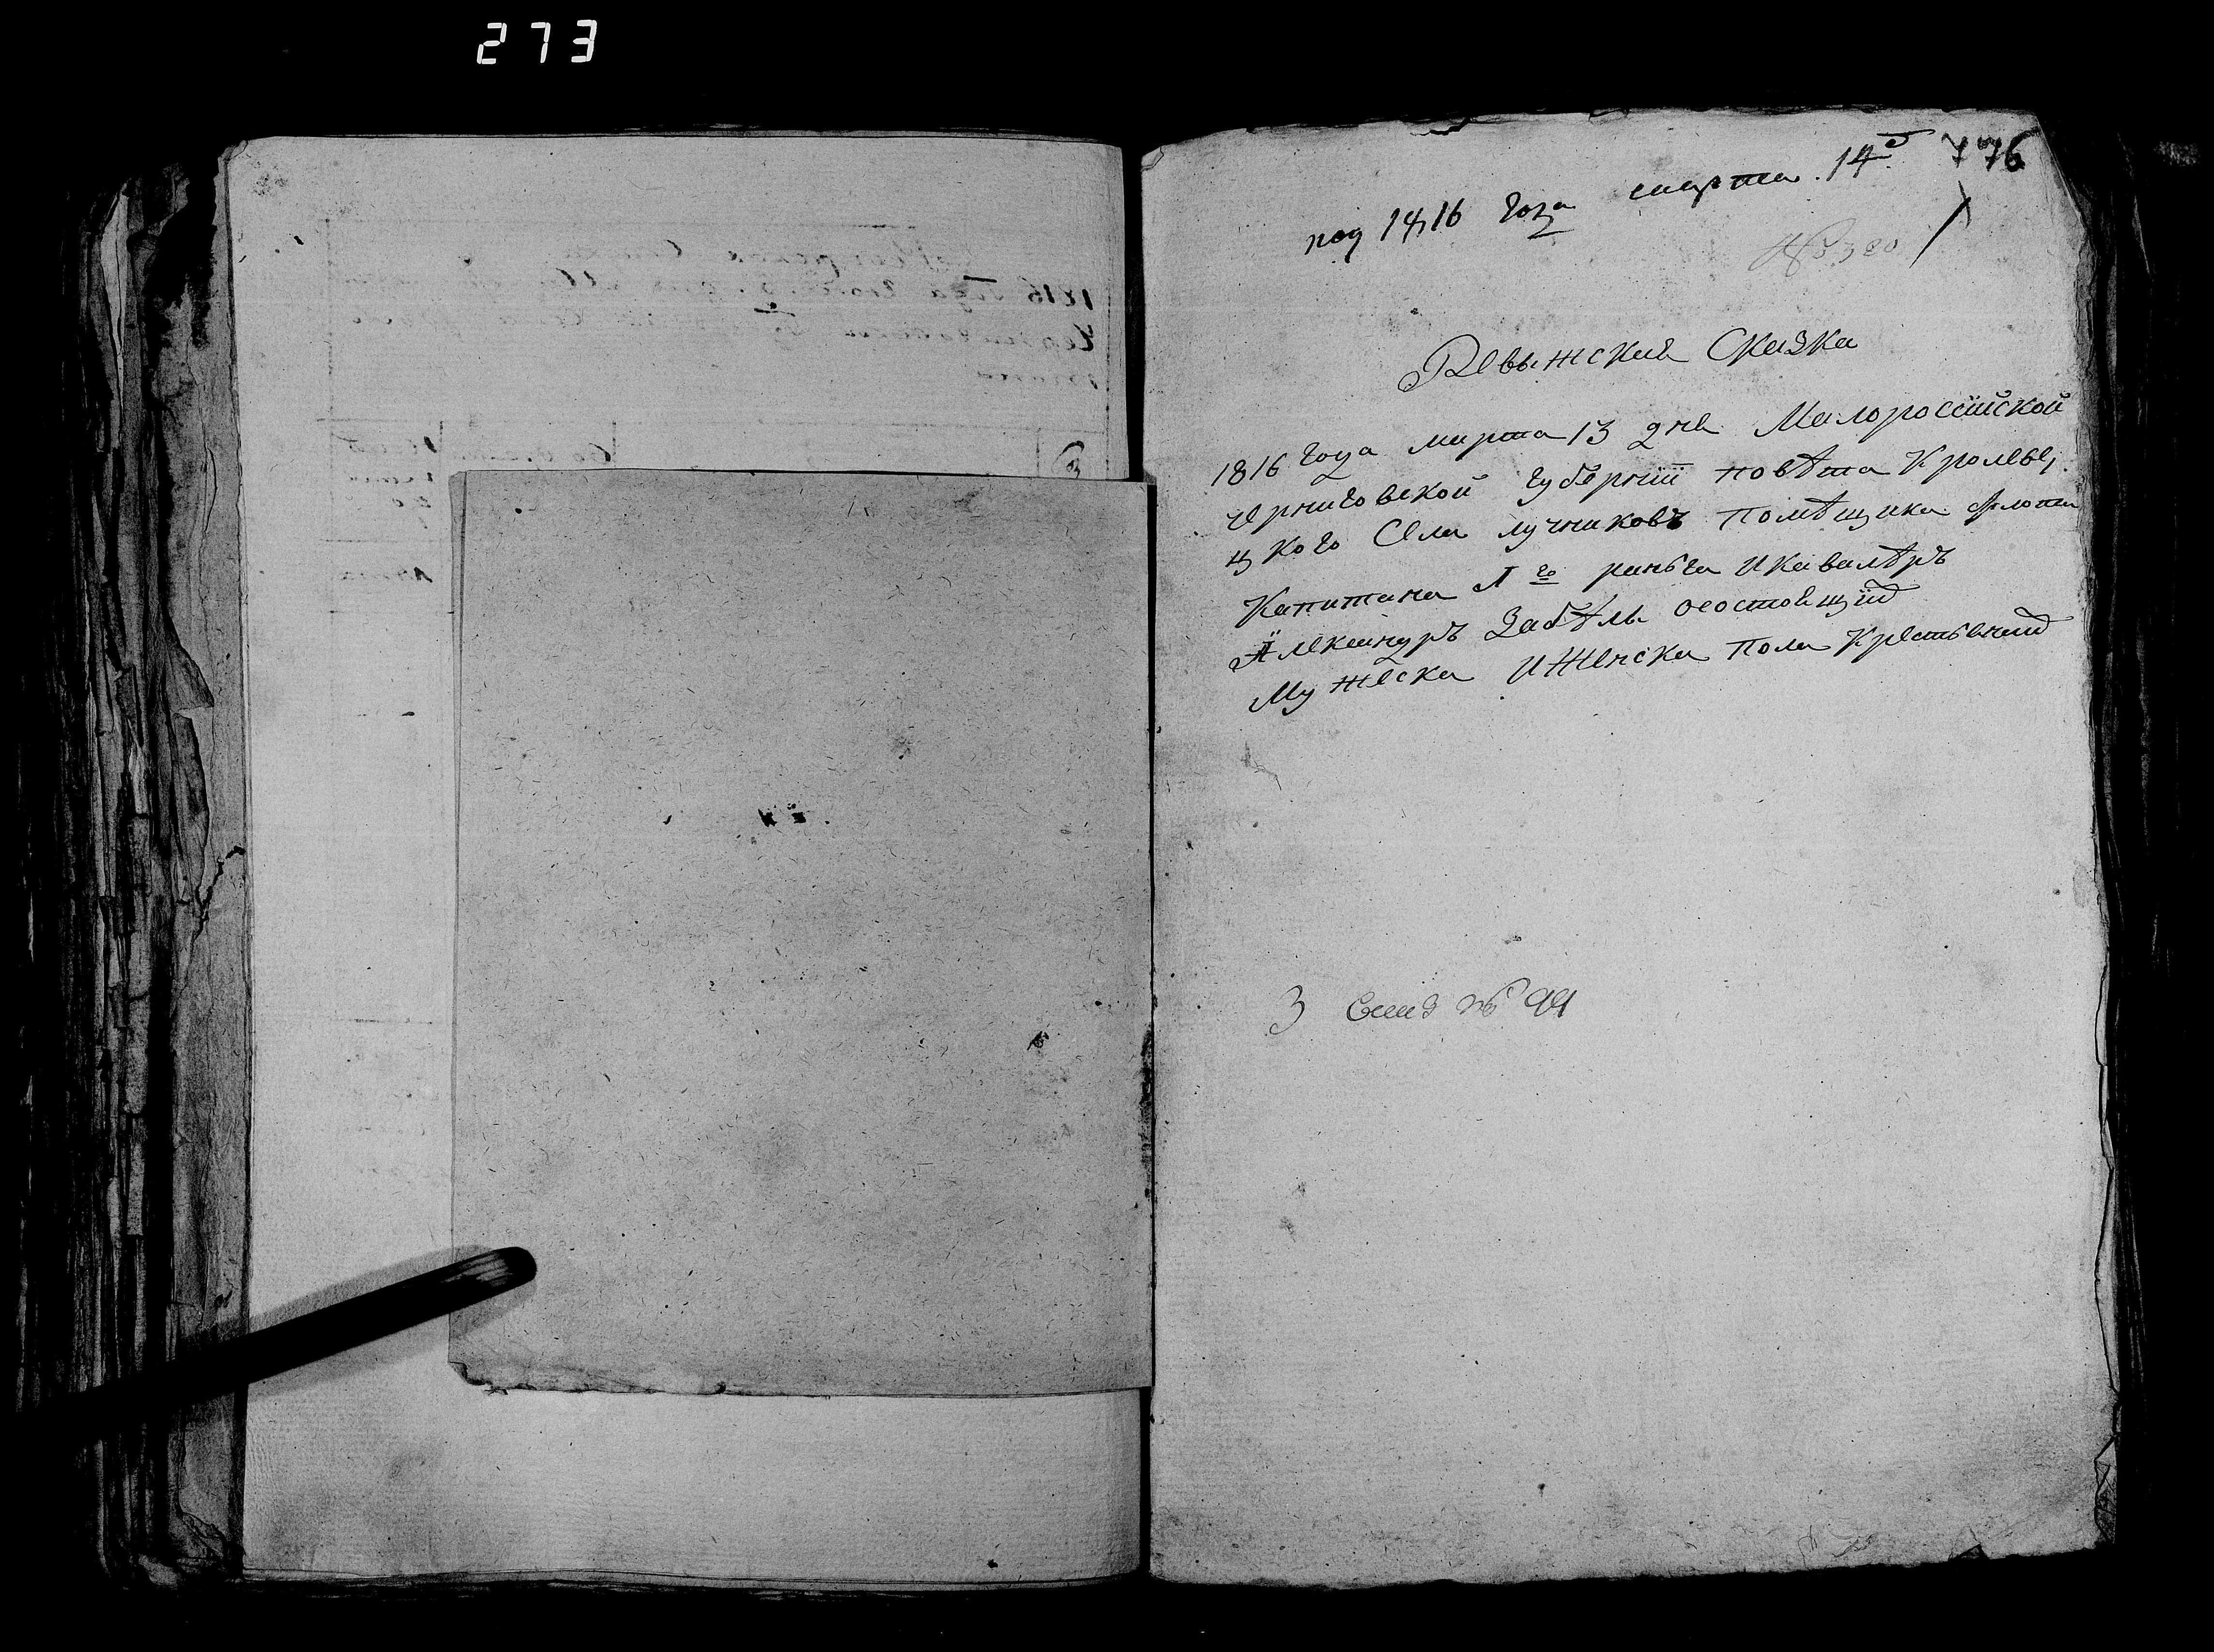 273
776
под 1816 года марта 14 д
№ 320
Ревыжская Сказка
1816 года марта 13 дня Малороссїйской
черниговской губернїи повѣта Кролевец
цкого Села лучниковъ помѣщика Флота
Капитана 1 го раньга и кавалѣръ
Александръ Забѣлы о состоящих
Мужеска и Женска пола Крестьяних
3 №